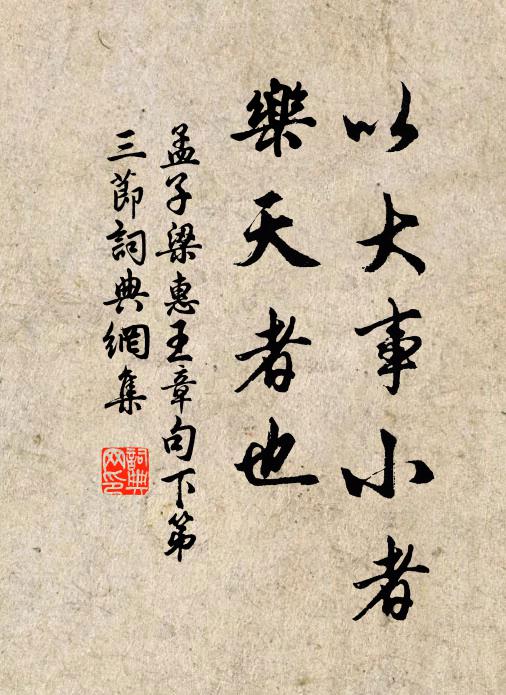 以大事小者
樂天者也
孟子梁惠王章句下第
三節詞典網集
詞典網印